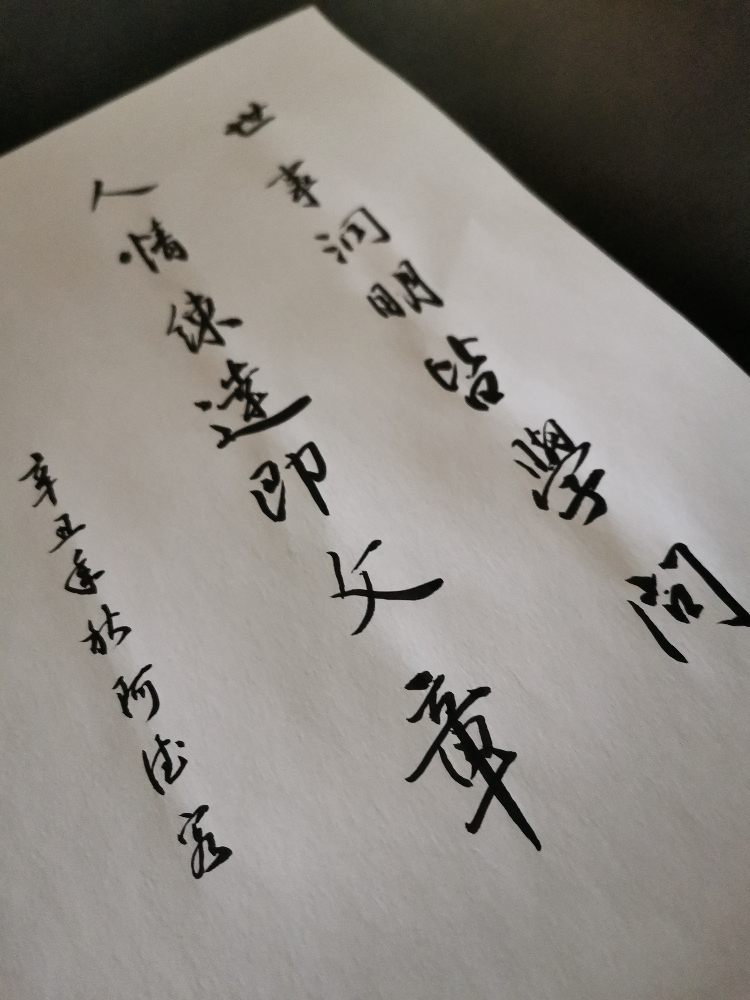 世事洞明皆學问
人情练達即文章
辛丑年於阿德客